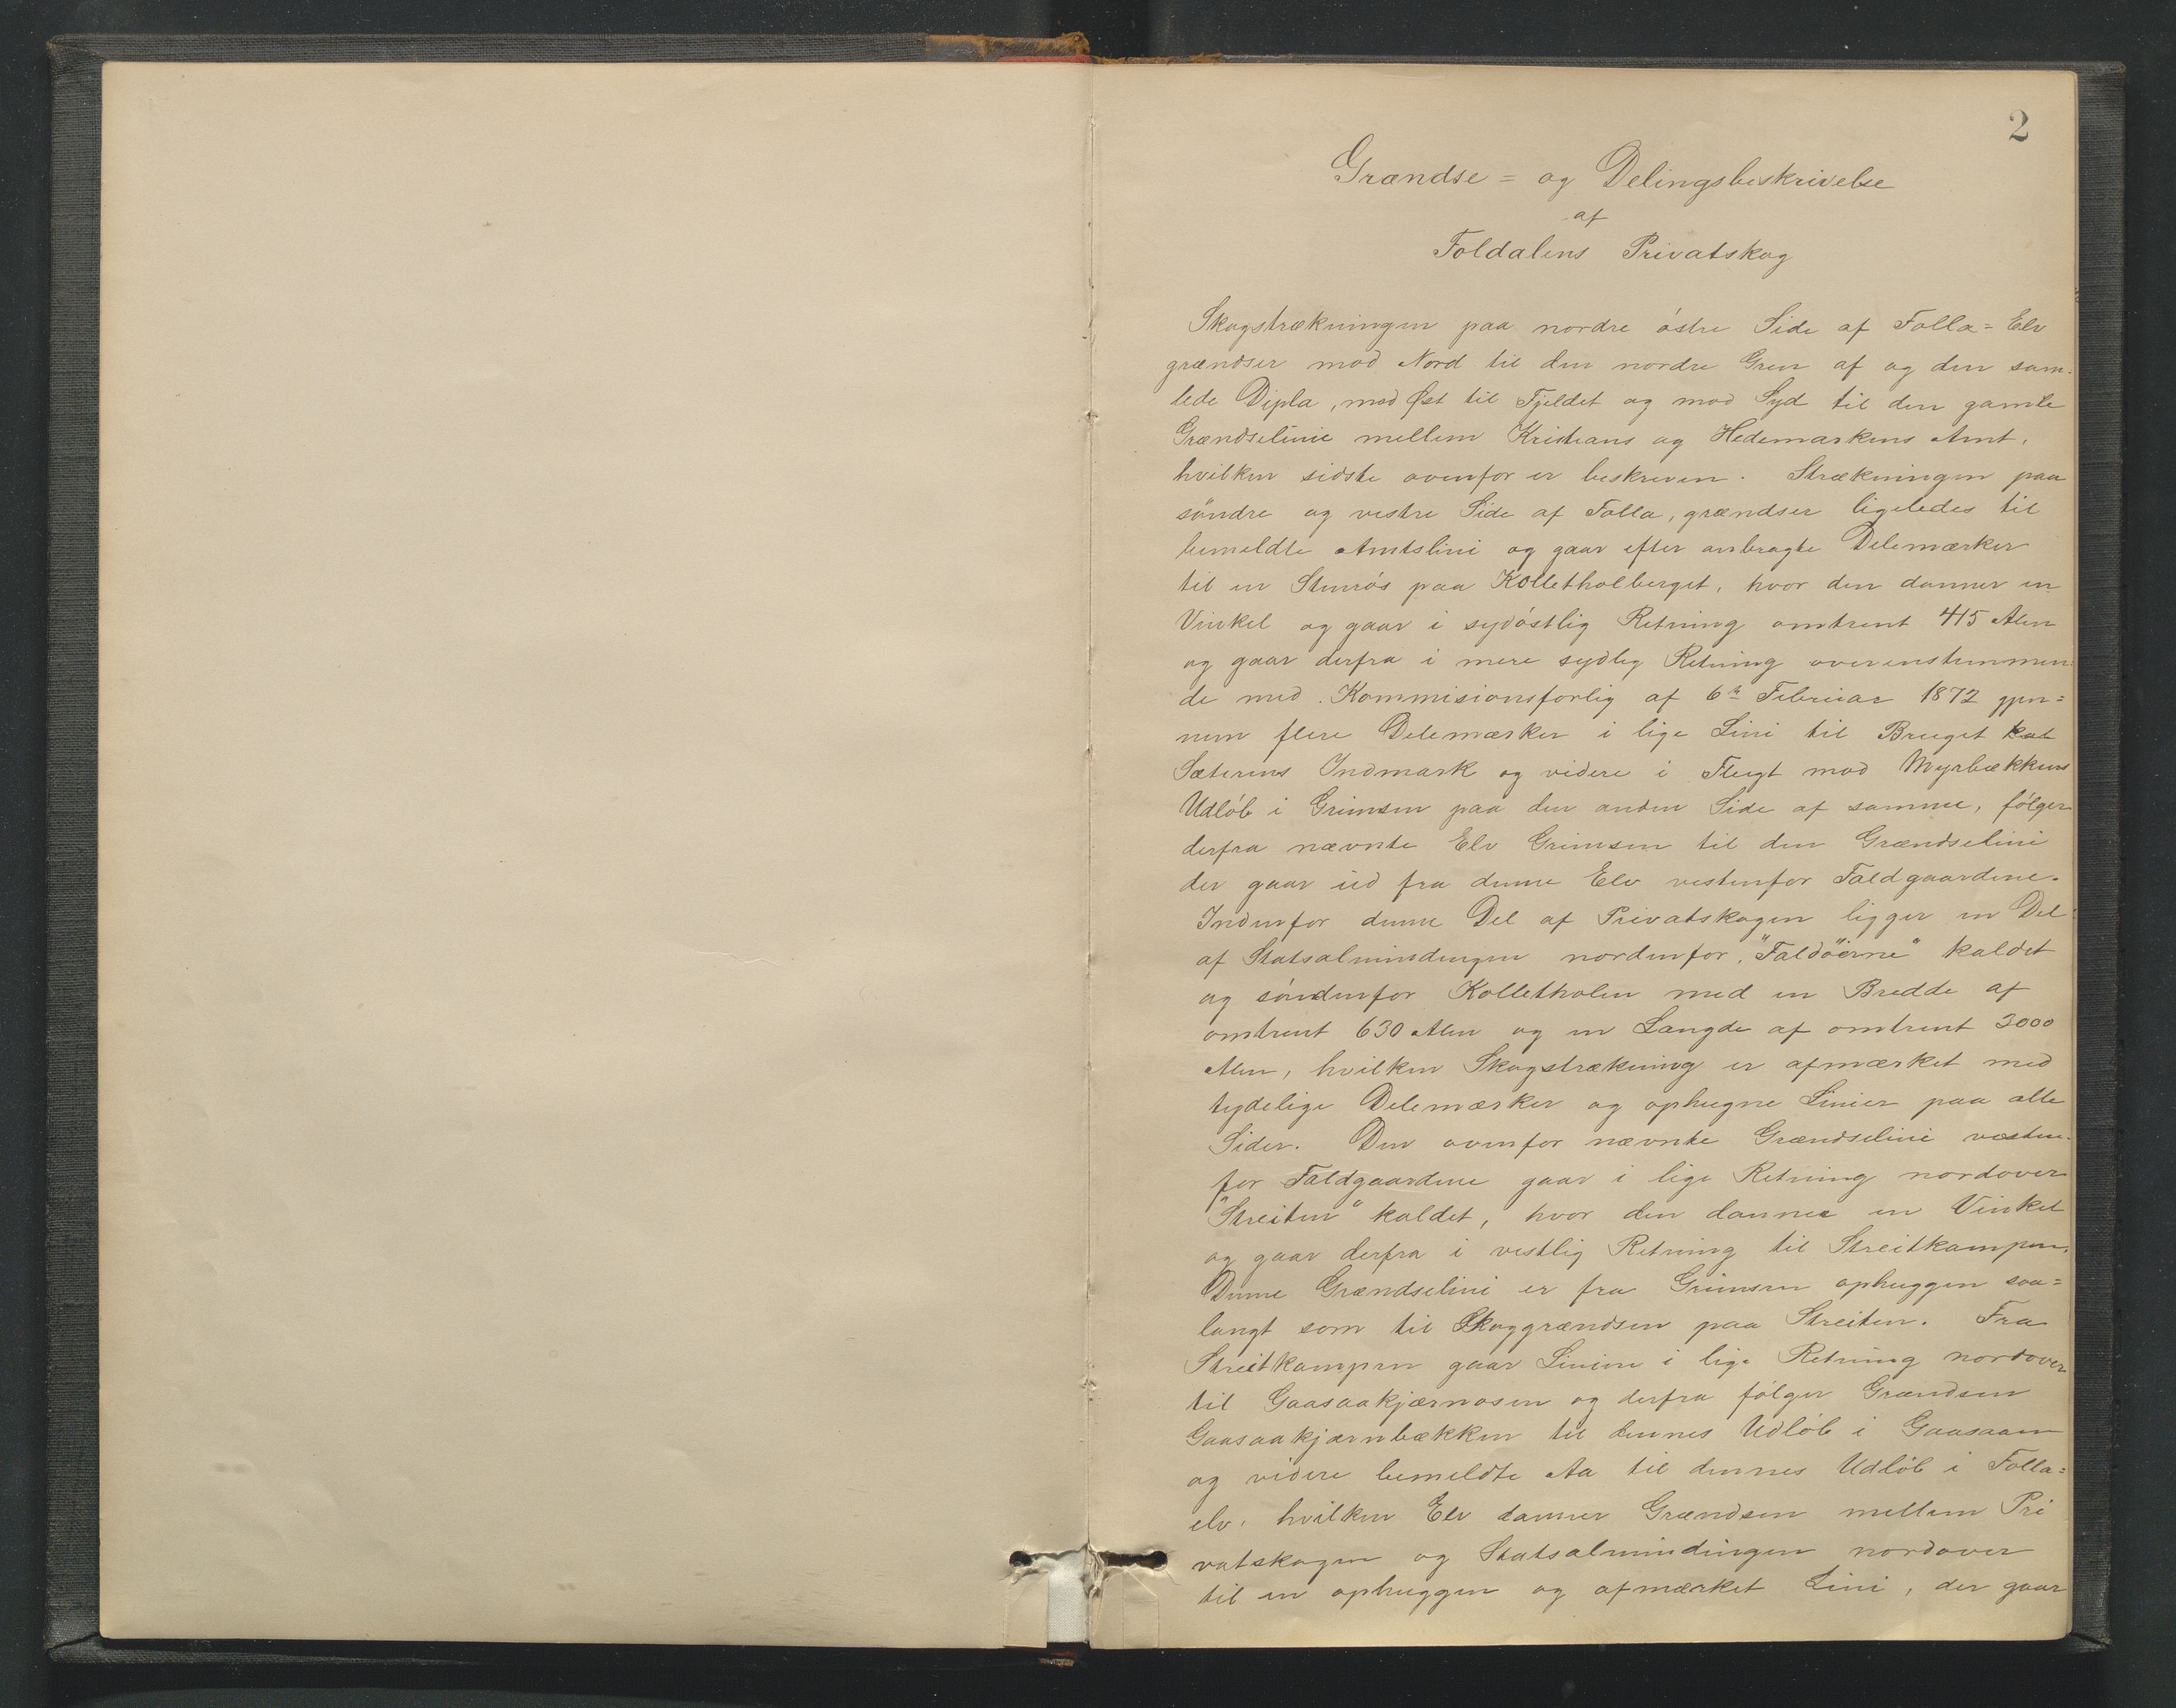 2
Grændse = og Delingsbeskrivelse
af
Foldalens Privatskog
Skogstrækningen paa nordre østre Side af Folla = Elv
grændser mod Nord til den nordre Gren af og den sam=
lede Dipla, mod Øst til Fjeldet og mod Syd til den gamle
Grændselinie mellem Kristians og Hedemarkens Amt,
hvilken sidste ovenfor er beskreven. Strækningen paa
söndre og vestre Side af Folla, grændser ligeledes til
bemeldte Amtslini og gaar efter anbragte Delemærker
til en Stenrós paa Kolletholberget, hvor den danner en
Vinkel og gaar i sydóstlig Retning omtrent 415 Alen
og gaar derfra i mere sydlig Retning overenstemmen=
de med Kommisionsforlig af 6te Februar 1872 gjen=
nem flere Delemærker i lige Lini til Bruget kat
Sæterens Indmark og videre i Flugt mod Myrbækkens
Udlób i Grimsen paa den anden Side af samme, fólger
derfra nævnte Elv Grimsen til den Grændselini
der gaar ud fra denne Elv vestenfor Faldgaardene.
Indenfor denne Del af Privatskogen ligger en Del
af Statsalmindingen nordenfor "Faldöerne" kaldet
og söndenfor Kolletholen med en Bredde af
omtrent 630 Alen og en Længde af omtrent 3000
Alen, hvilken Skogstrækning er afmærket med
tydelige Delemærker og ophugne Linier paa alle
Sider. Den ovenfor nævnte Grændselini vesten=
for Faldgaardene gaar i lige Retning nordover
"Streiten" kaldet, hvor den danner en Vinkel
og gaar derfra i vestlig Retning til Streitkampen.
Denne Grændselini er fra Grimsen ophuggen saa=
langt som til Skoggrændsen paa Streiten. Fra
Streitkampen gaar Linien i lige Retning nordover
til Gaasaakjærnosen og derfra fólger Grændsen
Gaasaakjærnbækken til dennes Udlób i Gaasaaen
og videre bemeldte Aa til dennes Udlób i Folla=
elv, hvilken Elv danner Grændsen mellem Pri
vatskogen og Statsalmindingen nordover
til en ophuggen og afmærket Lini, der gaar